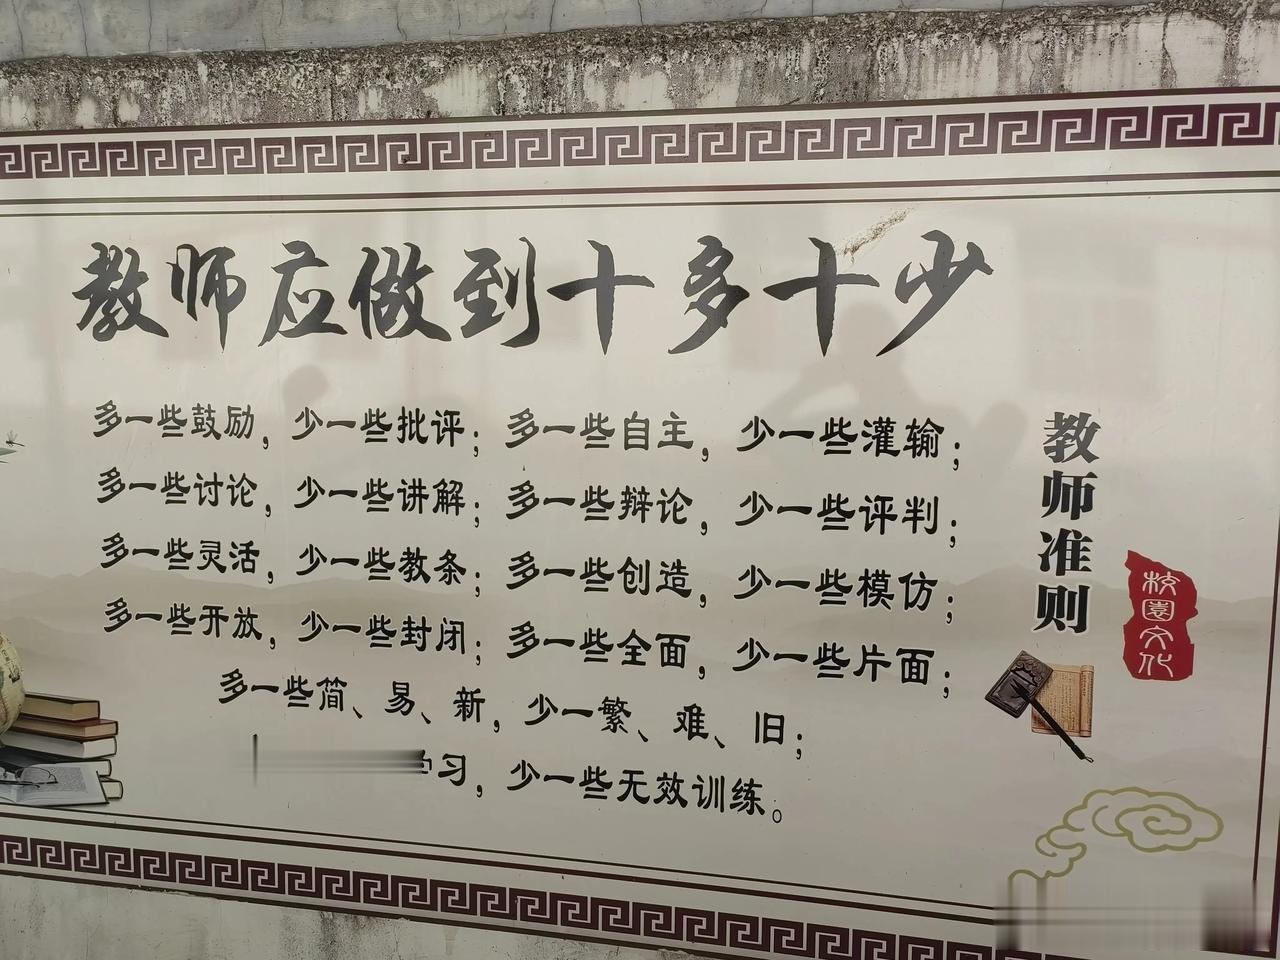 教师应做到十多十少
多一些鼓励，少一些批评；多一些自主，少一些灌输；
多一些讨论，少一些讲解；多一些辩论，少一些评判；
多一些灵活，少一些教条；多一些创造，少一些模仿；
多一些开放，少一些封闭；多一些全面，少一些片面；
多一些简、易、新，少一繁、难、旧；
习，少一些无效训练。
教师准则
校园文化